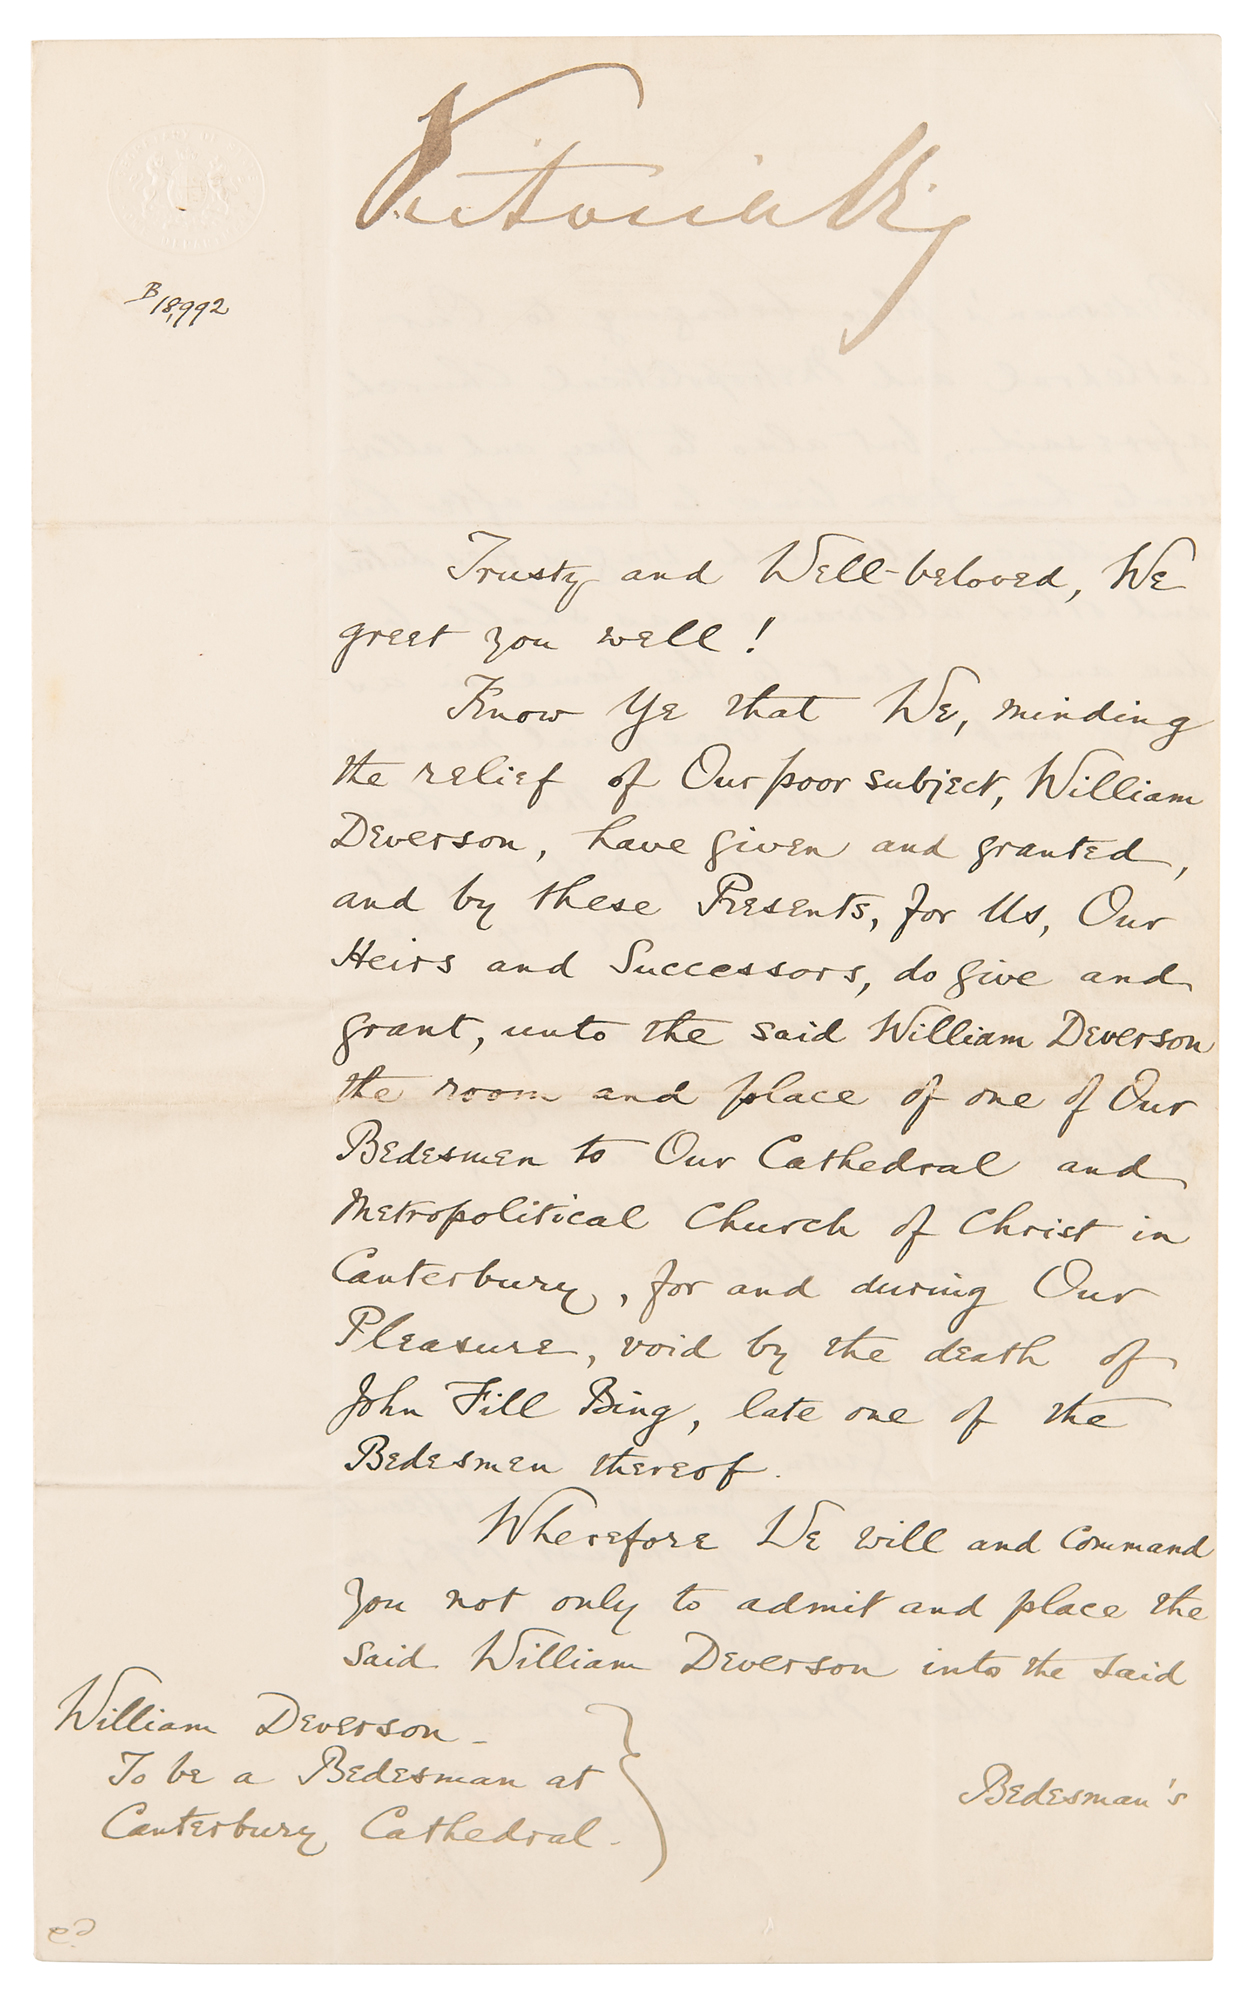 Victoria Rg
B 18,992
Trusty and Well-beloved, We
greet you well!
Know Ye that We, minding
the relief of Our poor subject, William
Deverson, have given and granted,
and by these Presents, for Us, Our
Heirs and Successors, do give and
grant, unto the said William Deverson
the room and place of one of Our
Bedesmen to Our Cathedral and
Metropolitical Church of Christ in
Canterbury, for and during Our
Pleasure, void by the death of
John Fill Bing, late one of the
Bedesmen thereof.
Wherefore We will and Command
you not only to admit and place the
said William Deverson into the said
William Deverson-
To be a Bedesman at
Canterbury Cathedral.
Bedesman's